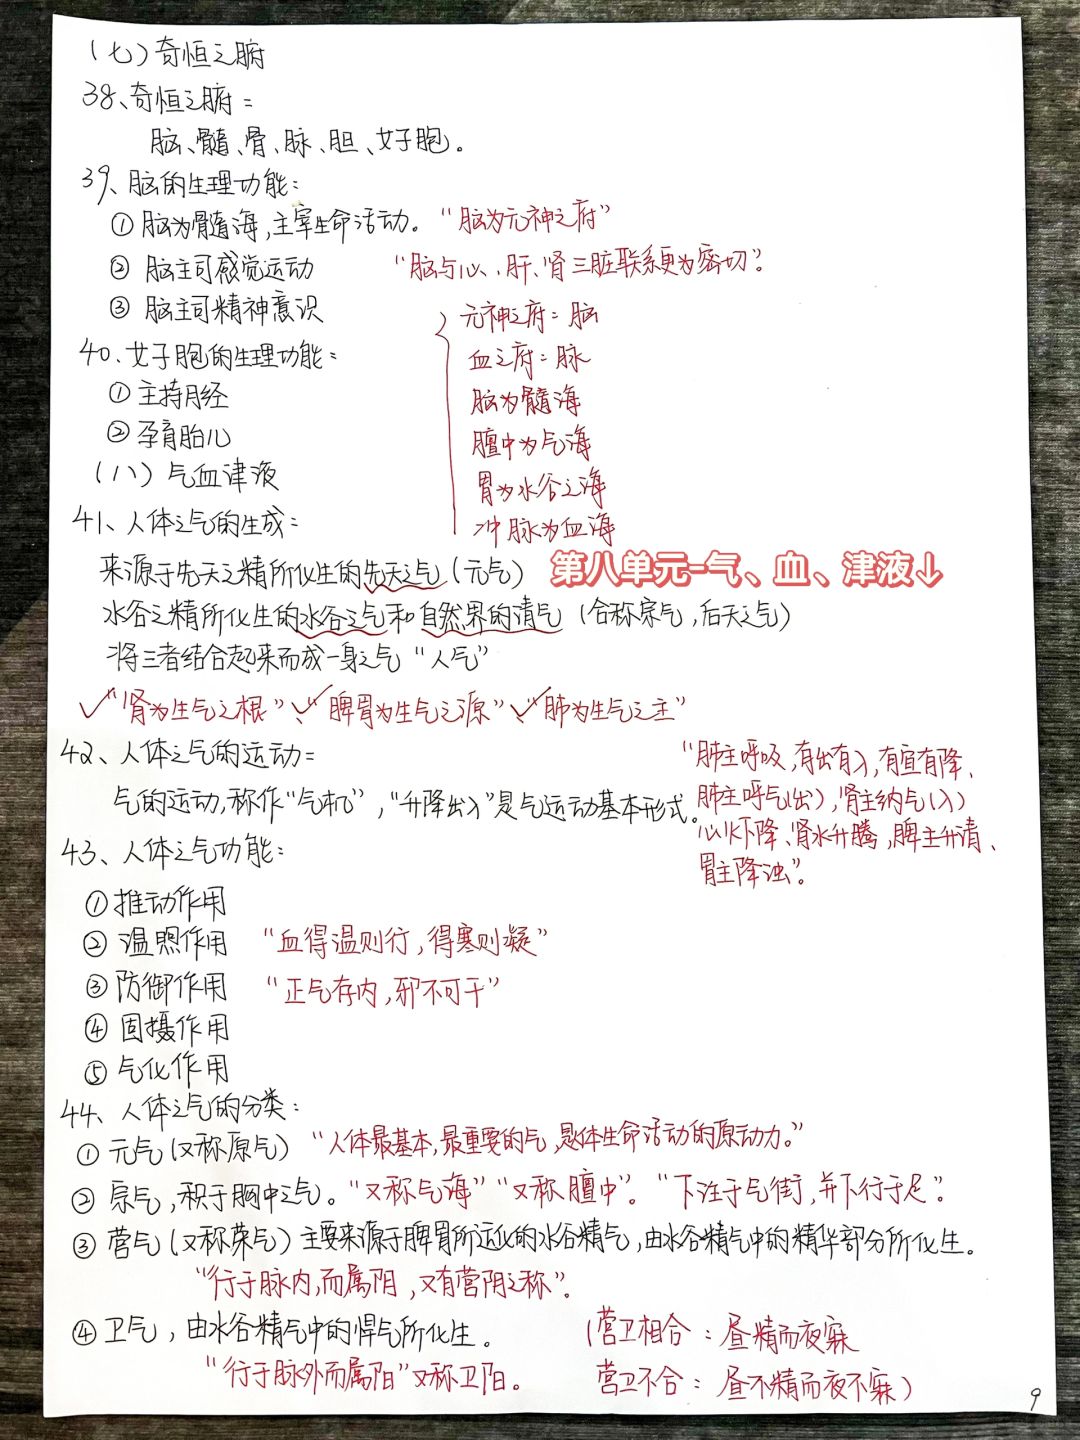 （七）奇恒之腑
38、奇恒之腑：
脑、髓、骨、脉、胆、女子胞。
39、脑的生理功能：
① 脑为髓海，主宰生命活动。 “脑为元神之府”
② 脑主司感觉运动 “脑与心、肝、肾三脏联系更为密切”。
③ 脑主司精神意识
元神之府：脑
40、女子胞的生理功能：
血之府：脉
① 主持月经
脑为髓海
② 孕育胎儿
膻中为气海
（八）气血津液
胃为水谷之海
41、人体之气的生成：
冲脉为血海
来源于先天之精所化生的先天之气（元气）
第八单元-气、血、津液↓
水谷之精所化生的水谷之气和自然界的清气（合称宗气，后天之气）
将三者结合起来而成一身之气“人气”
✓“肾为生气之根”、✓“脾胃为生气之源”、✓“肺为生气之主”
42、人体之气的运动：
气的运动，称作“气机”，“升降出入”是气运动基本形式。
“肺主呼吸，有出有入，有宣有降、
肺主呼气（出），肾主纳气（入）
心火下降、肾水升腾，脾主升清、
胃主降浊”。
43、人体之气功能：
① 推动作用
② 温煦作用 “血得温则行，得寒则凝”
③ 防御作用 “正气存内，邪不可干”
④ 固摄作用
⑤ 气化作用
44、人体之气的分类：
① 元气（又称原气） “人体最基本，最重要的气，是人体生命活动的原动力。”
② 宗气，积于胸中之气。“又称气海”“又称膻中”。“下注于气街，并下行于足”。
③ 营气（又称荣气）主要来源于脾胃所运化的水谷精气，由水谷精气中的精华部分所化生。
“行于脉内，而属阴，又有营阴之称”。
④ 卫气，由水谷精气中的悍气所化生。
“行于脉外而属阳”又称卫阳。
（营卫相合：昼精而夜寐
营卫不合：昼不精而夜不寐）
9